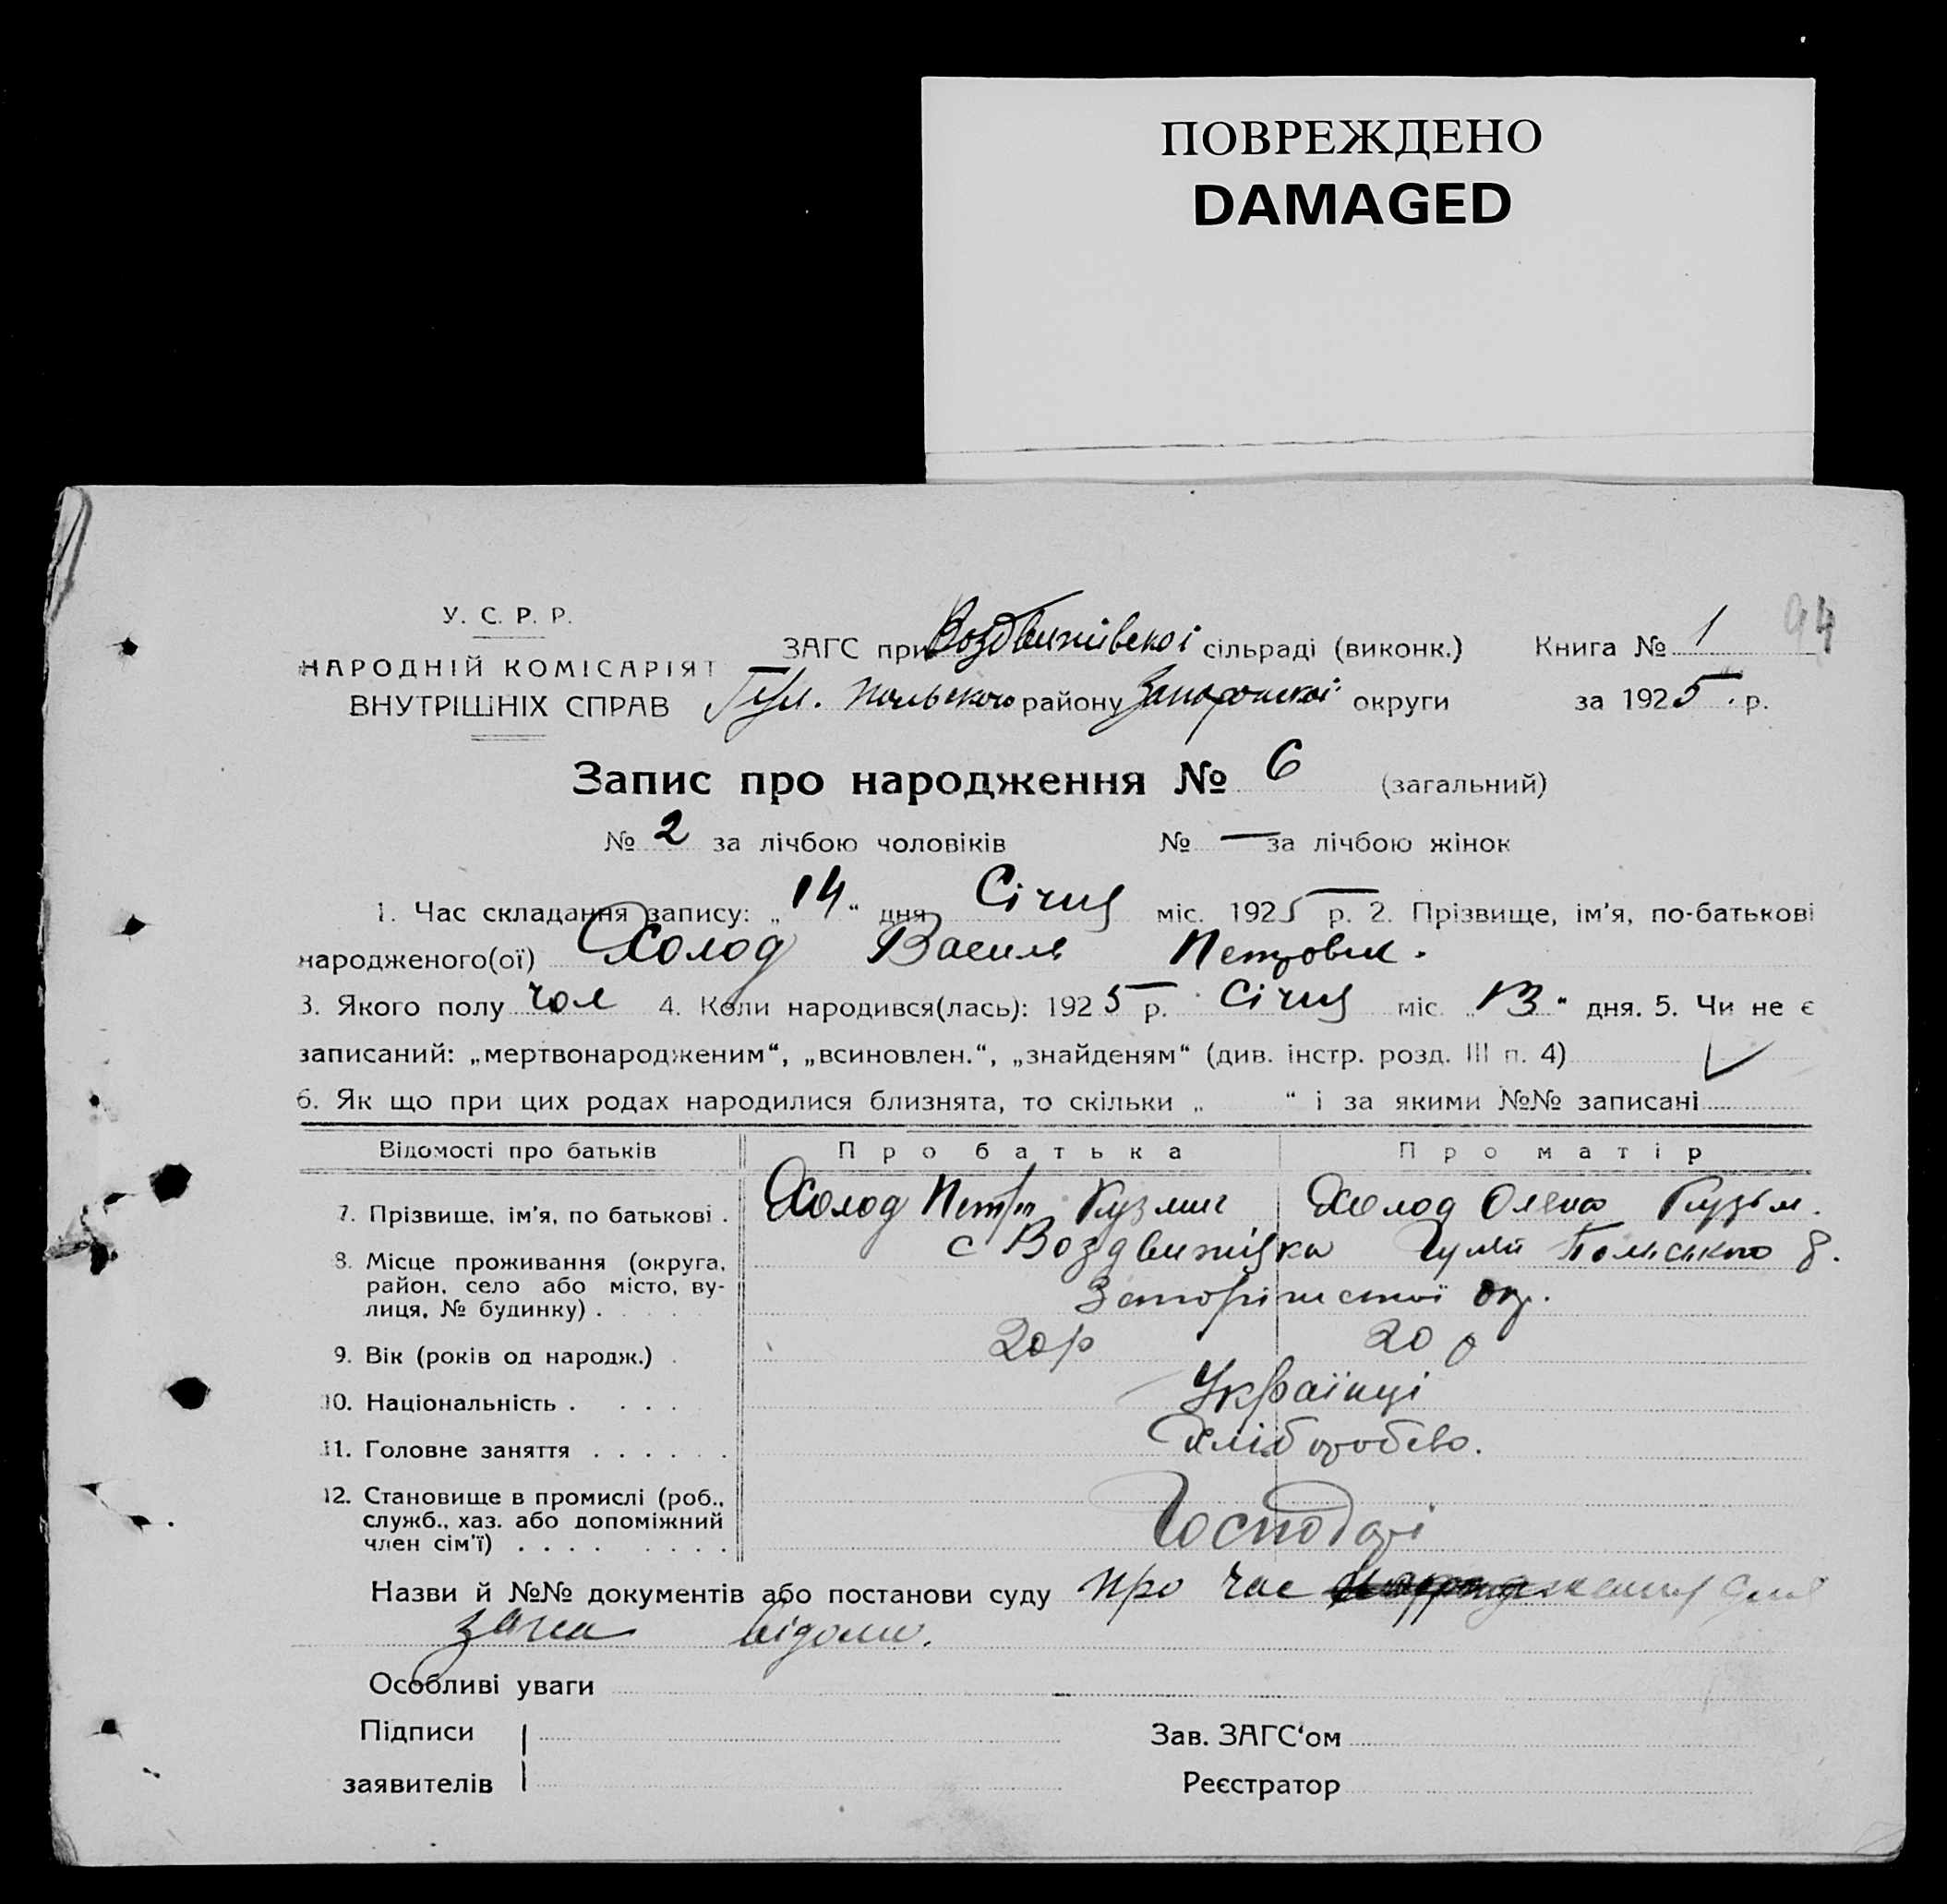 ПОВРЕЖДЕНО
DAMAGED
94
У. С. Р. Р.
НАРОДНІЙ КОМІСАРІЯТ
ВНУТРІШНІХ СПРАВ
ЗАГС при Воздвижівской сільраді (виконк.) Книга № 1
Гул. Польського району Запорожскої округи за 1925 р.
Запис про народження № 6 (загальний)
№ 2 за лічбою чоловіків № — за лічбою жінок
1. Час складання запису: „14“ дня Січня міс. 1925 р. 2. Прізвище, ім'я, по-батькові
народженого(ої) Холод Василь Петрович.
3. Якого полу чол 4. Коли народився(лась): 1925 р. Січня міс. „13“ дня. 5. Чи не є
записаний: „мертвонародженим“, „всиновлен.“, „знайденям“ (див. інстр. розд. III п. 4)
6. Як що при цих родах народилися близнята, то скільки „ “ і за якими №№ записані
Відомості про батьків Про батька Про матір
7. Прізвище, ім'я, по батькові . Холод Петро Кузмич Холод Олена Кузьм.
8. Місце проживання (округа, с Воздвижівка Гуляй Польського р.
район, село або місто, ву-
лиця, № будинку) . Запоріжської окр.
9. Вік (років од народж.) . 20 р 20 р
10. Національність . . . . Українці
11. Головне заняття . . . . . . Хліборобство.
12. Становище в промислі (роб.,
служб., хаз. або допоміжний Господарі
член сім'ї) . . . . . . . .
Назви й №№ документів або постанови суду про час народження
відомо.
Особливі уваги
Підписи Зав. ЗАГС'ом
заявителів Реєстратор